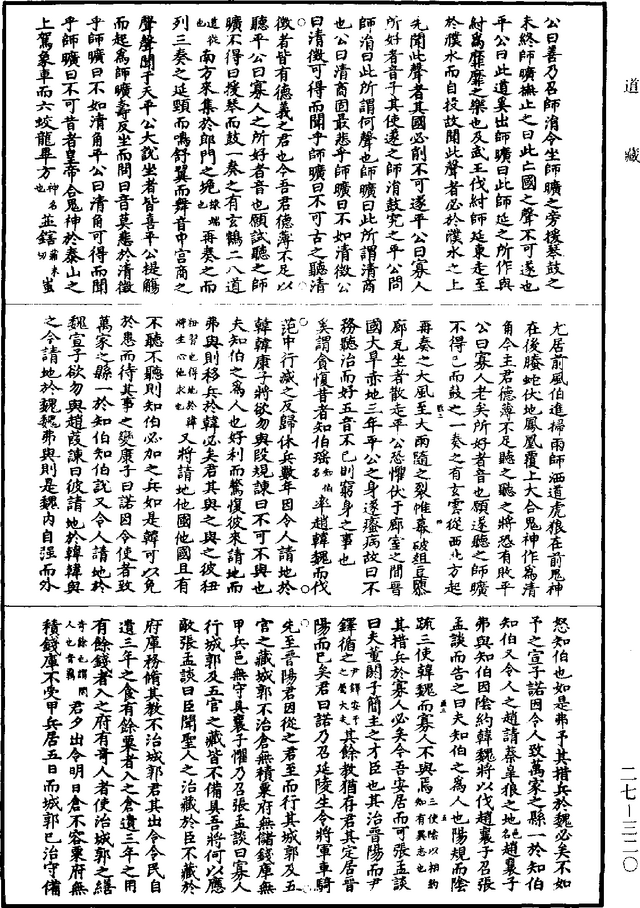 道藏
公曰善乃召師涓令坐師曠之旁援琴鼓之
未終師曠撫止之曰此亡國之聲不可遂也
平公曰此道奚出師曠曰此師延之所作與
紂爲靡靡之樂也及武王伐紂師延東走至
於濮水而自投故聞此聲者必於濮水之上
先聞此聲者其國必削不可遂平公曰寡人
所好者音子其使遂之師涓鼓究之平公問
師涓曰此所謂何聲也師曠曰此所謂清商
也公曰清商固最悲乎師曠曰不如清徵公
曰清徵可得而聞乎師曠曰不可古之聽清
徵者皆有德義之君也今吾君德薄不足以
聽平公曰寡人之所好者音也願試聽之師
曠不得已援琴而鼓一奏之有玄鶴二八道
道從也南方來集於郎門之垝棟端也再奏之而
列三奏之延頸而鳴舒翼而舞音中宮商之
聲聲聞于天平公大說坐者皆喜平公提觴
而起爲師曠壽反坐而問曰音莫悲於清徵
乎師曠曰不如清角平公曰清角可得而聞
乎師曠曰不可昔者皇帝合鬼神於泰山之
上駕象車而六蛟龍畢方神名也並鎋蚩
尤居前風伯進掃雨師洒道虎狼在前鬼神
在後螣蛇伏地鳳凰覆上大合鬼神作爲清
角今主君德薄不足聽之聽之將恐有敗平
公曰寡人老矣所好者音也願遂聽之師曠
不得已而鼓之一奏之有玄雲從西北方起
再奏之大風至大雨隨之裂帷幕破俎豆隳
廊瓦坐者散走平公恐懼伏于廊室之間晉
國大旱赤地三年平公之身遂癃病故曰不
務聽治而好五音不已則窮身之事也
奚謂貪愎昔者知伯瑤知伯名率趙韓魏而伐
范中行滅之反歸休兵數年因令人請地於
韓韓康子將欲勿與段規諫曰不可不與也
夫知伯之爲人也好利而驁愎彼來請地而
弗與則移兵於韓必矣君其與之與之彼狃
又將請地他國他國且有
不聽不聽則知伯必加之兵如是韓可以免
於患而待其事之變康子曰諾因令使者致
萬家之縣一於知伯知伯說又令人請地於
魏宣子欲勿與趙葭諫曰彼請地於韓韓與
之今請地於魏魏弗與則是魏內自强而外
怒知伯也如是弗予其措兵於魏必矣不如
予之宣子諾因令人致萬家之縣一於知伯
知伯又令人之趙請蔡皋狼之地邑名趙襄子
弗與知伯因陰約韓魏將以伐趙襄子召張
孟談而告之曰夫知伯之爲人也陽規而陰
疏三使韓魏而寡人不與焉三使陰以相約知有異志也
其措兵於寡人必矣今吾安居而可張孟談
曰夫董閼于簡主之才臣也其治晉陽而尹
鐸循之尹鐸安于之屬大夫其餘教猶存君其定居晉
陽而已矣君曰諾乃召延陵生令將軍車騎
先至晉陽君因從之君至而行其城郭及五
官之藏城郭不治倉無積粟府無儲錢庫無
甲兵邑無守具襄子懼乃召張孟談曰寡人
行城郭及五官之藏皆不備具吾將何以應
敵張孟談曰臣聞聖人之治藏於臣不藏於
府庫務脩其教不治城郭君其出令令民自
遺三年之食有餘粟者入之倉遺三年之用
有餘錢者入之府有奇人者使治城郭之繕
君夕出令明日倉不容粟府無
積錢庫不受甲兵居五日而城郭已治守備
二七—三二〇